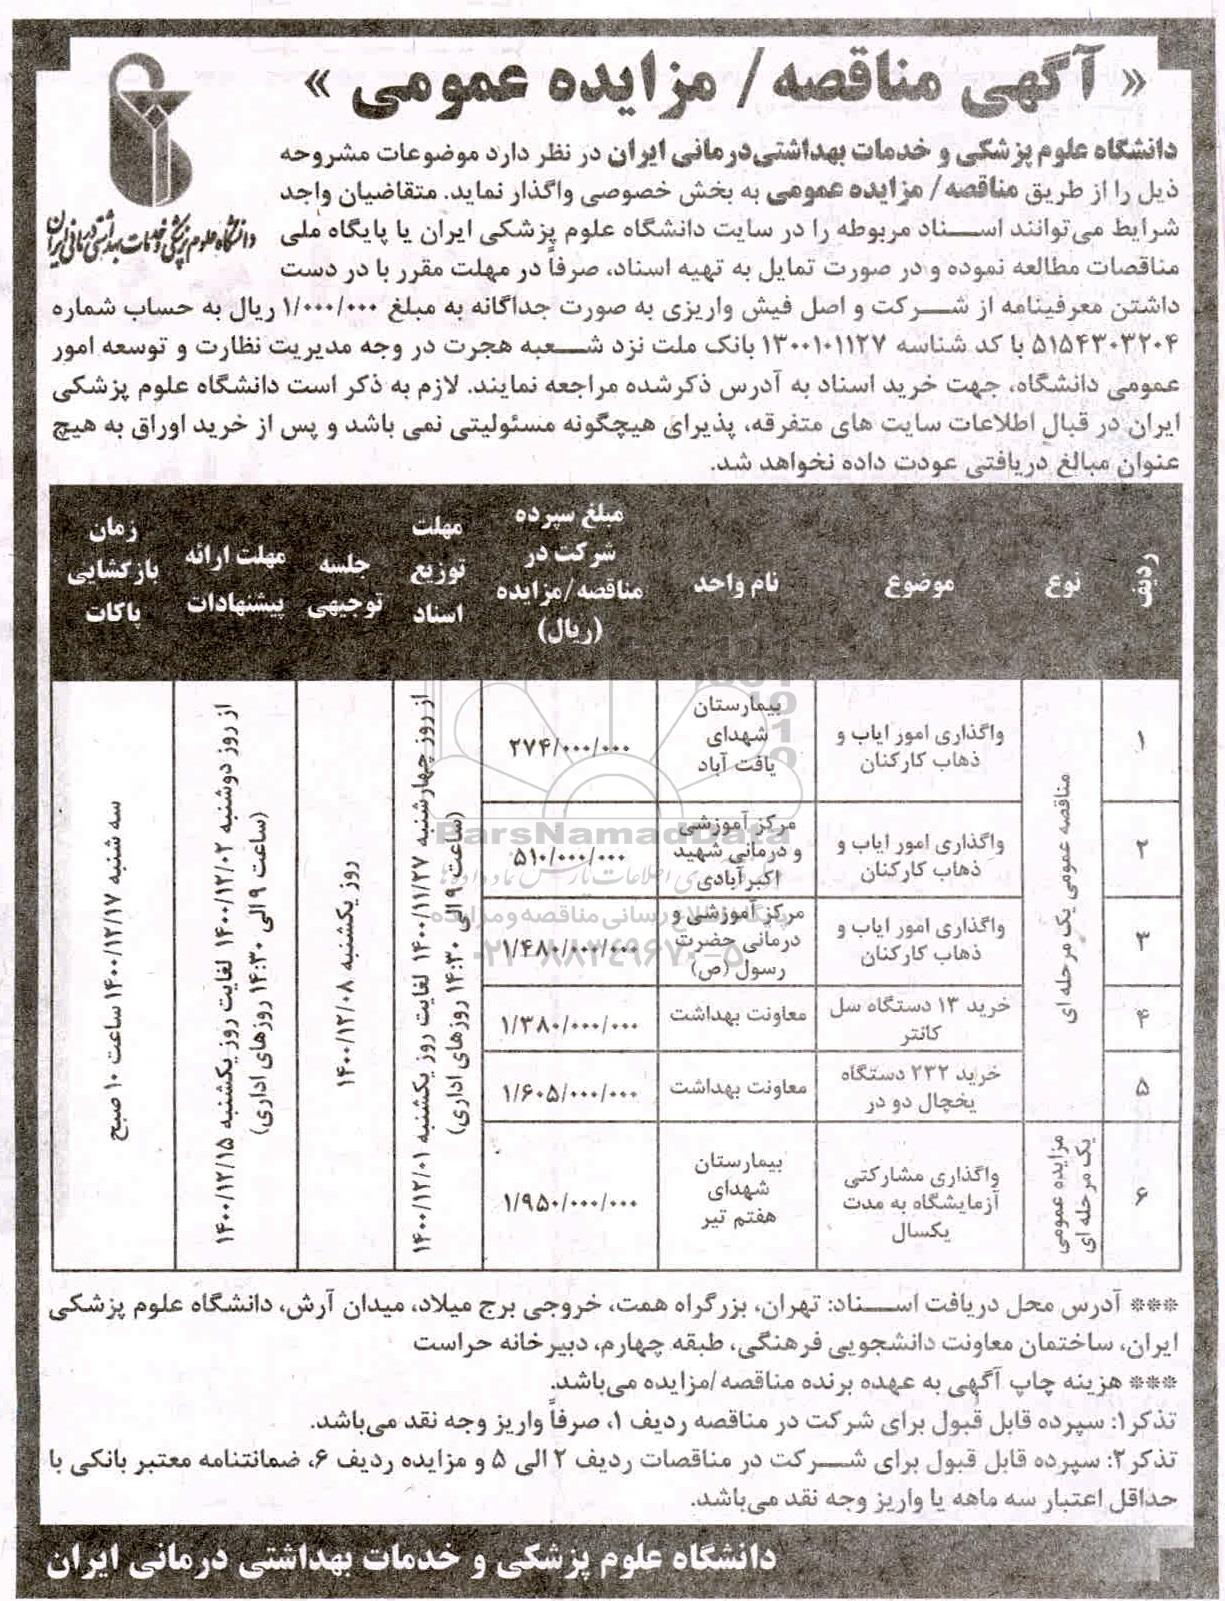 « آگهی مناقصه/ مزایده عمومی »
دانشگاه علوم پزشکی و خدمات بهداشتی درمانی ایران
دانشگاه علوم پزشکی و خدمات بهداشتی‌درمانی ایران در نظر دارد موضوعات مشروحه
ذیل را از طریق مناقصه/ مزایده عمومی به بخش خصوصی واگذار نماید. متقاضیان واجد
شرایط می‌توانند اسناد مربوطه را در سایت دانشگاه علوم پزشکی ایران یا پایگاه ملی
مناقصات مطالعه نموده و در صورت تمایل به تهیه اسناد، صرفاً در مهلت مقرر با در دست
داشتن معرفینامه از شرکت و اصل فیش واریزی به صورت جداگانه به مبلغ ۱/۰۰۰/۰۰۰ ریال به حساب شماره
۵۱۵۴۳۰۳۲۰۴ با کد شناسه ۱۳۰۰۱۰۱۱۲۷ بانک ملت نزد شعبه هجرت در وجه مدیریت نظارت و توسعه امور
عمومی دانشگاه، جهت خرید اسناد به آدرس ذکرشده مراجعه نمایند. لازم به ذکر است دانشگاه علوم پزشکی
ایران در قبال اطلاعات سایت های متفرقه، پذیرای هیچگونه مسئولیتی نمی باشد و پس از خرید اوراق به هیچ
عنوان مبالغ دریافتی عودت داده نخواهد شد.
ردیف
نوع
موضوع
نام واحد
مبلغ سپرده
شرکت در
مناقصه/مزایده
(ریال)
مهلت
توزیع
اسناد
جلسه
توجیهی
مهلت ارائه
پیشنهادات
زمان
بازگشایی
پاکات
۱
مناقصه عمومی یک مرحله ای
واگذاری امور ایاب و
ذهاب کارکنان
بیمارستان
شهدای
یافت آباد
۲۷۴/۰۰۰/۰۰۰
از روز چهارشنبه ۱۴۰۰/۱۱/۲۷ لغایت روز یکشنبه ۱۴۰۰/۱۲/۰۱
(ساعت ۹ الی ۱۴:۳۰ روزهای اداری)
روز یکشنبه ۱۴۰۰/۱۲/۰۸
از روز دوشنبه ۱۴۰۰/۱۲/۰۲ لغایت روز یکشنبه ۱۴۰۰/۱۲/۱۵
(ساعت ۹ الی ۱۴:۳۰ روزهای اداری)
سه شنبه ۱۴۰۰/۱۲/۱۷ ساعت ۱۰ صبح
۲
واگذاری امور ایاب و
ذهاب کارکنان
مرکز آموزشی
و درمانی شهید
اکبرآبادی
۵۱۰/۰۰۰/۰۰۰
۳
واگذاری امور ایاب و
ذهاب کارکنان
مرکز آموزشی و
درمانی حضرت
رسول (ص)
۱/۴۸۰/۰۰۰/۰۰۰
۴
خرید ۱۳ دستگاه سل
کانتر
معاونت بهداشت
۱/۳۸۰/۰۰۰/۰۰۰
۵
خرید ۲۳۲ دستگاه
یخچال دو در
معاونت بهداشت
۱/۶۰۵/۰۰۰/۰۰۰
۶
مزایده عمومی
یک مرحله ای
واگذاری مشارکتی
آزمایشگاه به مدت
یکسال
بیمارستان
شهدای
هفتم تیر
۱/۹۵۰/۰۰۰/۰۰۰
ParsNamadData
پایگاه اطلاع رسانی مناقصه و مزایده
۰۲۱-۸۸۳۴۹۶۷۰-۵
*** آدرس محل دریافت اسناد: تهران، بزرگراه همت، خروجی برج میلاد، میدان آرش، دانشگاه علوم پزشکی
ایران، ساختمان معاونت دانشجویی فرهنگی، طبقه چهارم، دبیرخانه حراست
*** هزینه چاپ آگهی به عهده برنده مناقصه/مزایده می‌باشد.
تذکر۱: سپرده قابل قبول برای شرکت در مناقصه ردیف ۱، صرفاً واریز وجه نقد می‌باشد.
تذکر۲: سپرده قابل قبول برای شرکت در مناقصات ردیف ۲ الی ۵ و مزایده ردیف ۶، ضمانتنامه معتبر بانکی با
حداقل اعتبار سه ماهه یا واریز وجه نقد می‌باشد.
دانشگاه علوم پزشکی و خدمات بهداشتی درمانی ایران